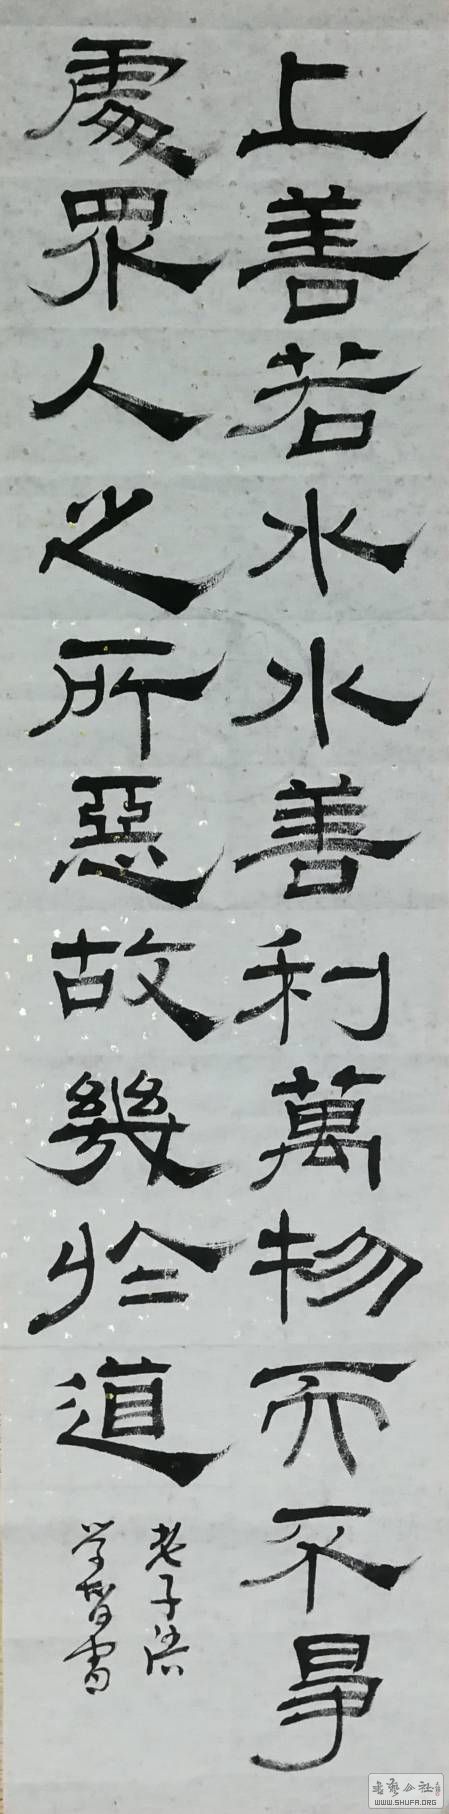 上善若水水善利萬物而不爭
處眾人之所惡故幾於道
老子語
学智書
书艺公社
WWW.SHUFA.ORG